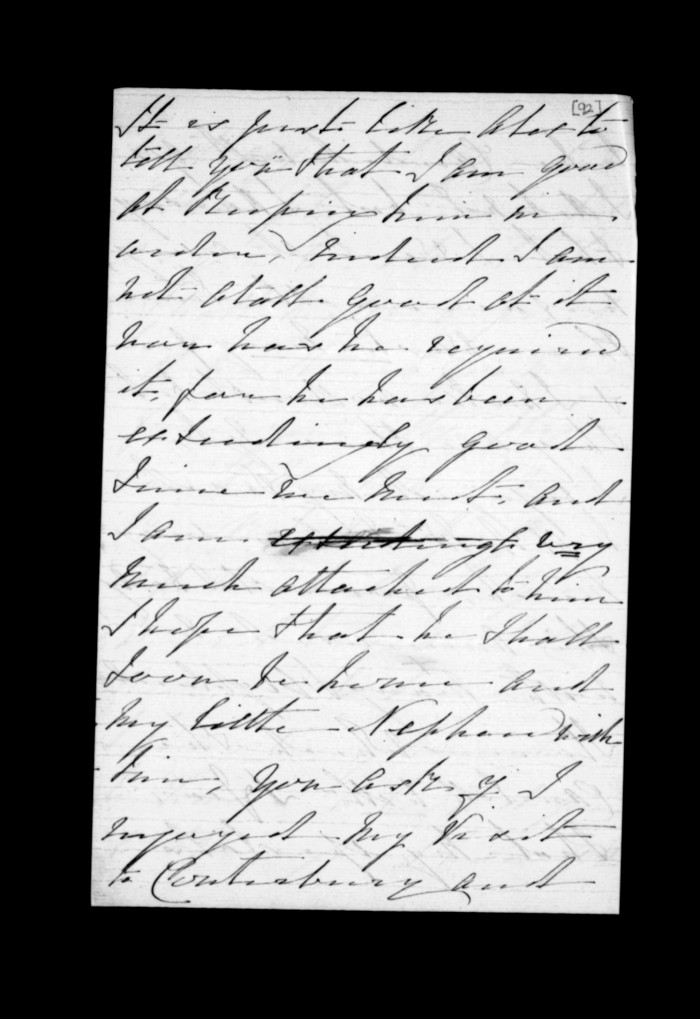 [92]
It is just like Alex to
tell you that I am good
at keeping him in
order, indeed I am
not atall good at it
nor has he required
it, for he has been
exceedingly good
since we met, and
I am very
much attached to him
I hope that he shall
soon be home and
my little Nephew with
him, you ask if I
enjoyed my Visit
to Canterbury and